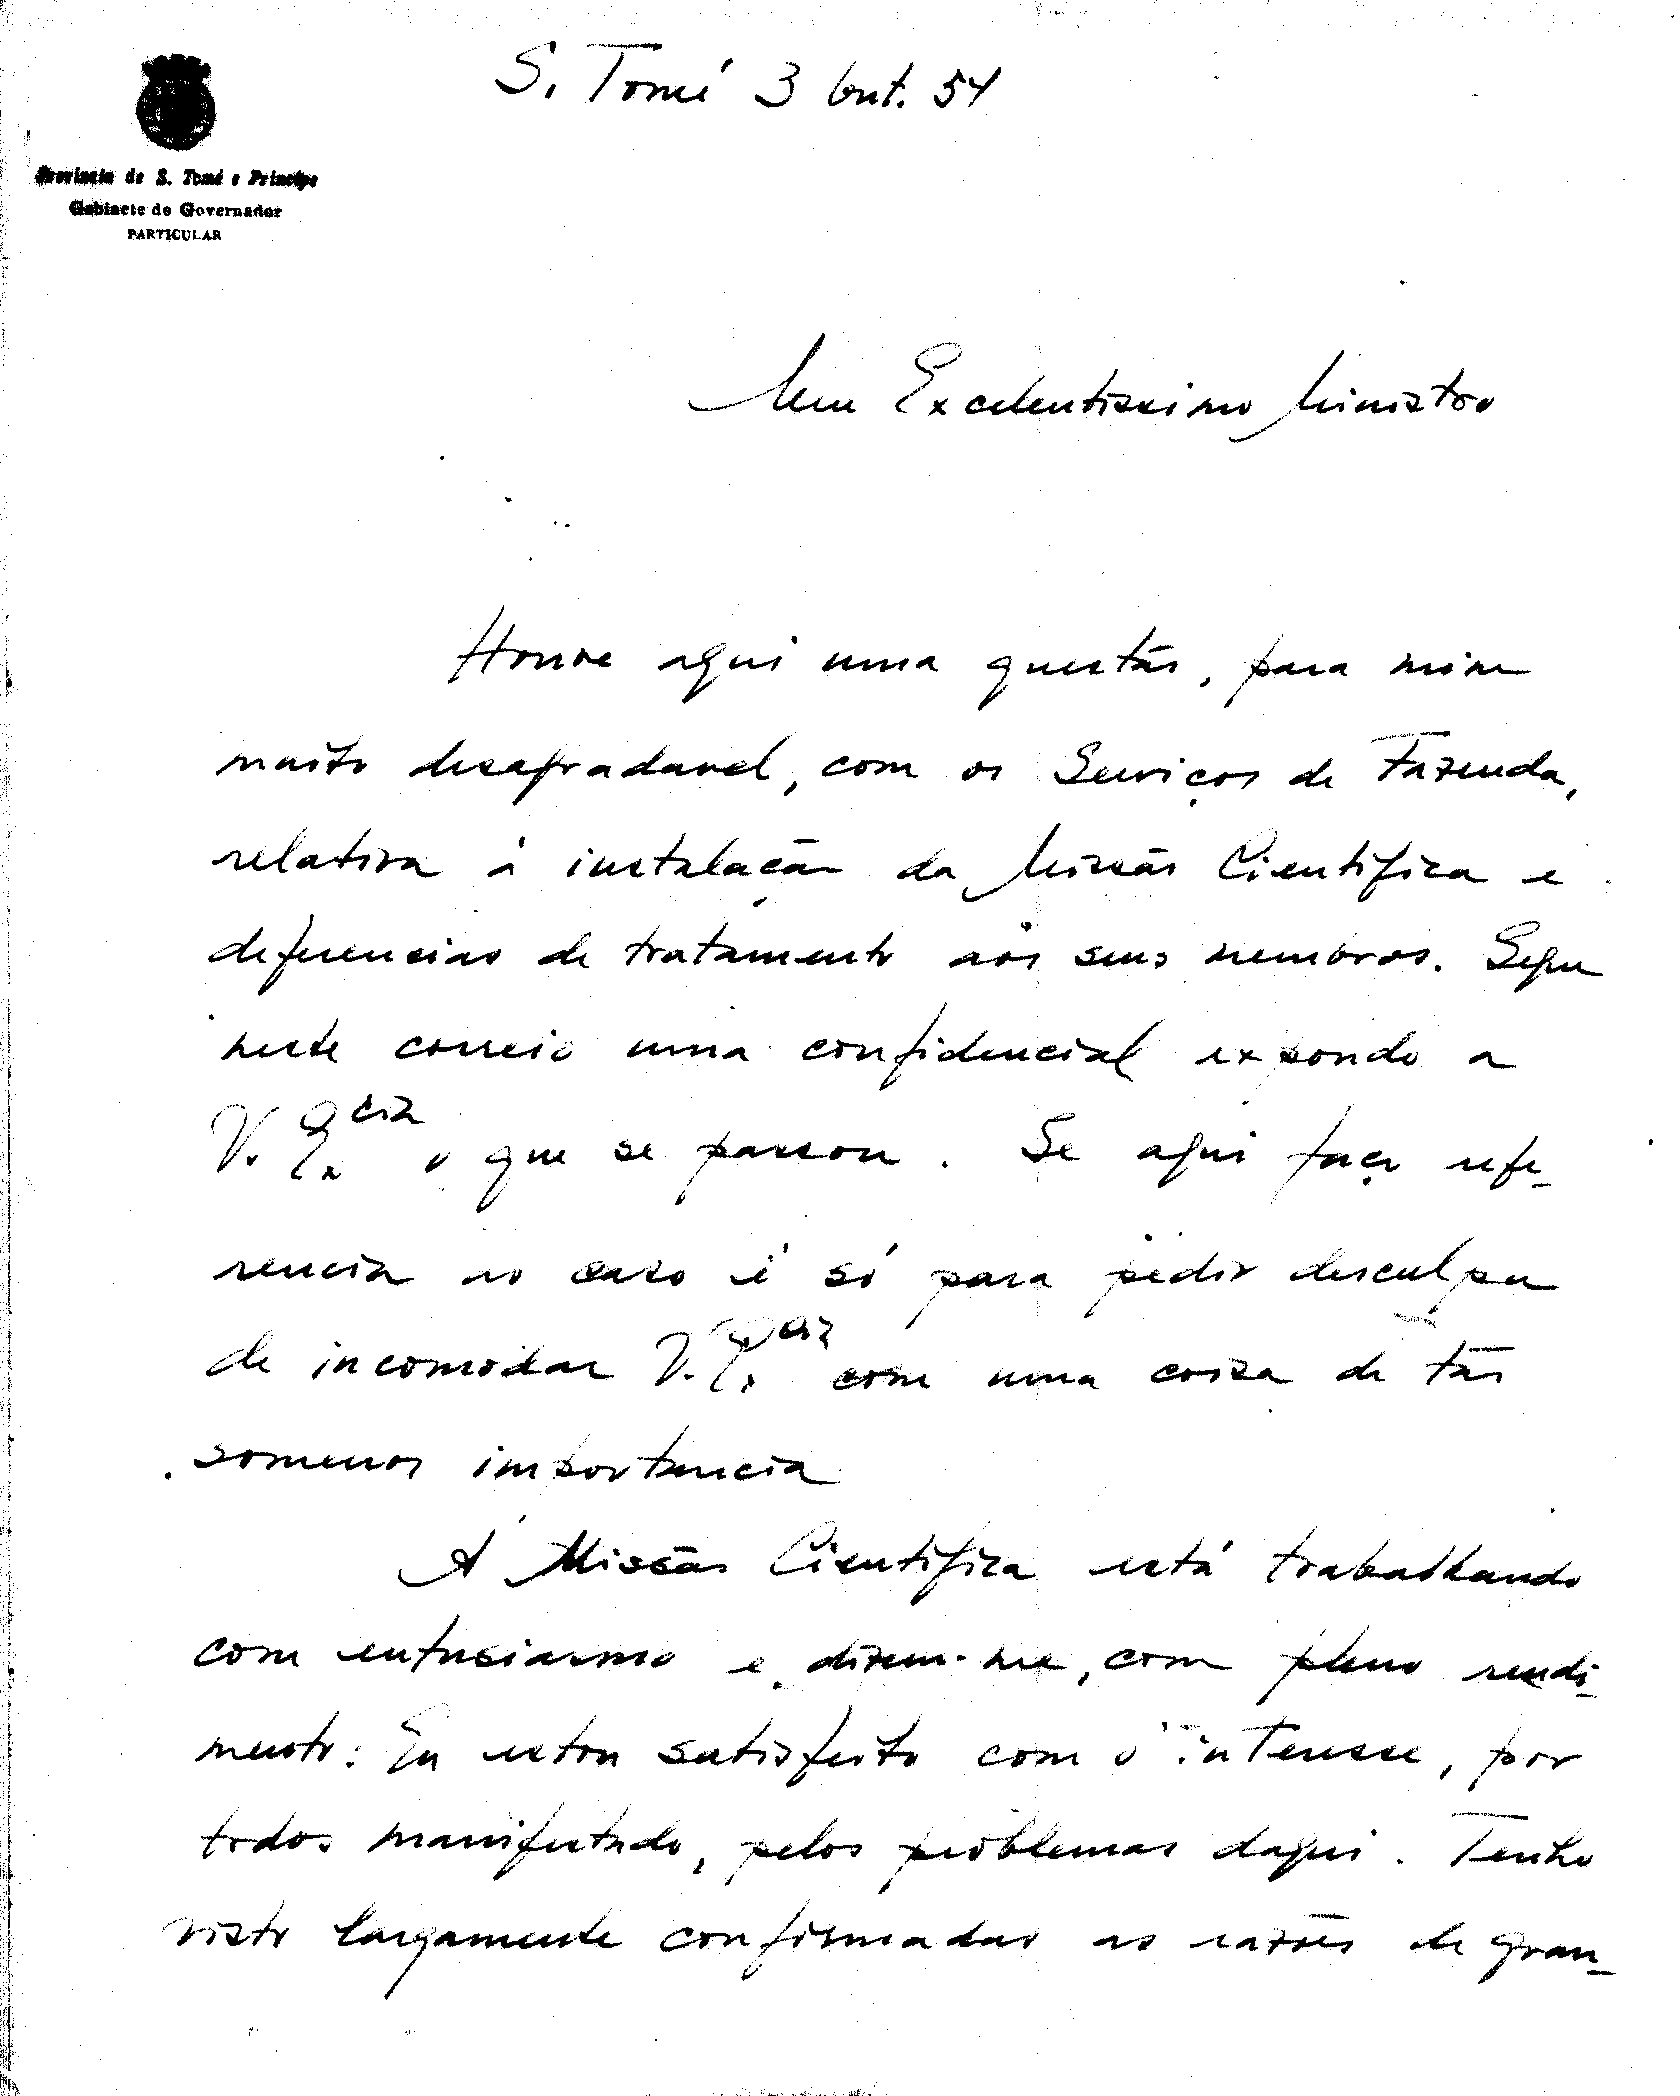 S. Tomé 3 Out. 54
Provincia de S. Tomé e Principe
Gabinete do Governador
PARTICULAR
Meu Excelentissimo Ministro
Houve aqui uma questão, para mim
muito desagradavel, com os Serviços de Fazenda,
relativa á instalação da Missão Cientifica e
deferencias de tratamento aos seus membros. Segue
neste correio uma confidencial expondo a
V. Ex.cia o que se passou. Se aqui faço refe-
rencia ao caso é só para pedir desculpa
de incomodar V. Ex.cia com uma coisa de tão
somenos importancia
A Missão Cientifica está trabalhando
com entusiasmo e, dizem-me, com pleno rendi-
mento. Eu estou satisfeito com o interesse, por
todos manifestado, pelos problemas daqui. Tenho
visto largamente confirmadas as razões de gran-